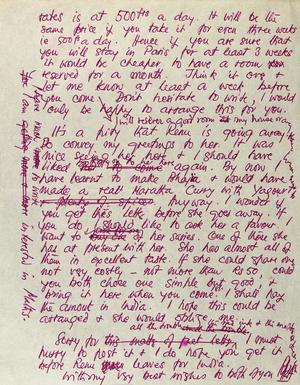 rates is at 500 frs a day. It will be the
same price if you take it for even three weeks
ie 500 f a day. Hence if you are sure that
you will stay in Paris for at least 3 weeks
it would be cheaper to have a room
reserved for a month. Think it over
let me know at least a week before
you come. Don't hesitate to write, I would
only be happy to arrange this for you.
I will reserve a good room at my house or
It's a pity that Renu is going away.
Do convey my greetings to her. It was
nice seeing her here & I should have
liked her to come again. By now I
have learnt to make bhaji, we would have
made a real Maratha Curry with Yagourt
plenty of spices. Anyway. I wonder if
you get this letter before she goes away. If
you do I should like to ask her a favour. I
want to her saris. One of them she
has at present with her. She has almost all of
them in excellent taste. If she could share
not very costly – not more than Rs 50, could
you both choose one simple but good, &
bring it here when you come. I shall pay
the amount in India. I hope this could be
arranged & she would
all the
Sorry for this I must
hurry to post it & I do hope you get it
before Renu leaves for India.
With my very best wishes to both of you